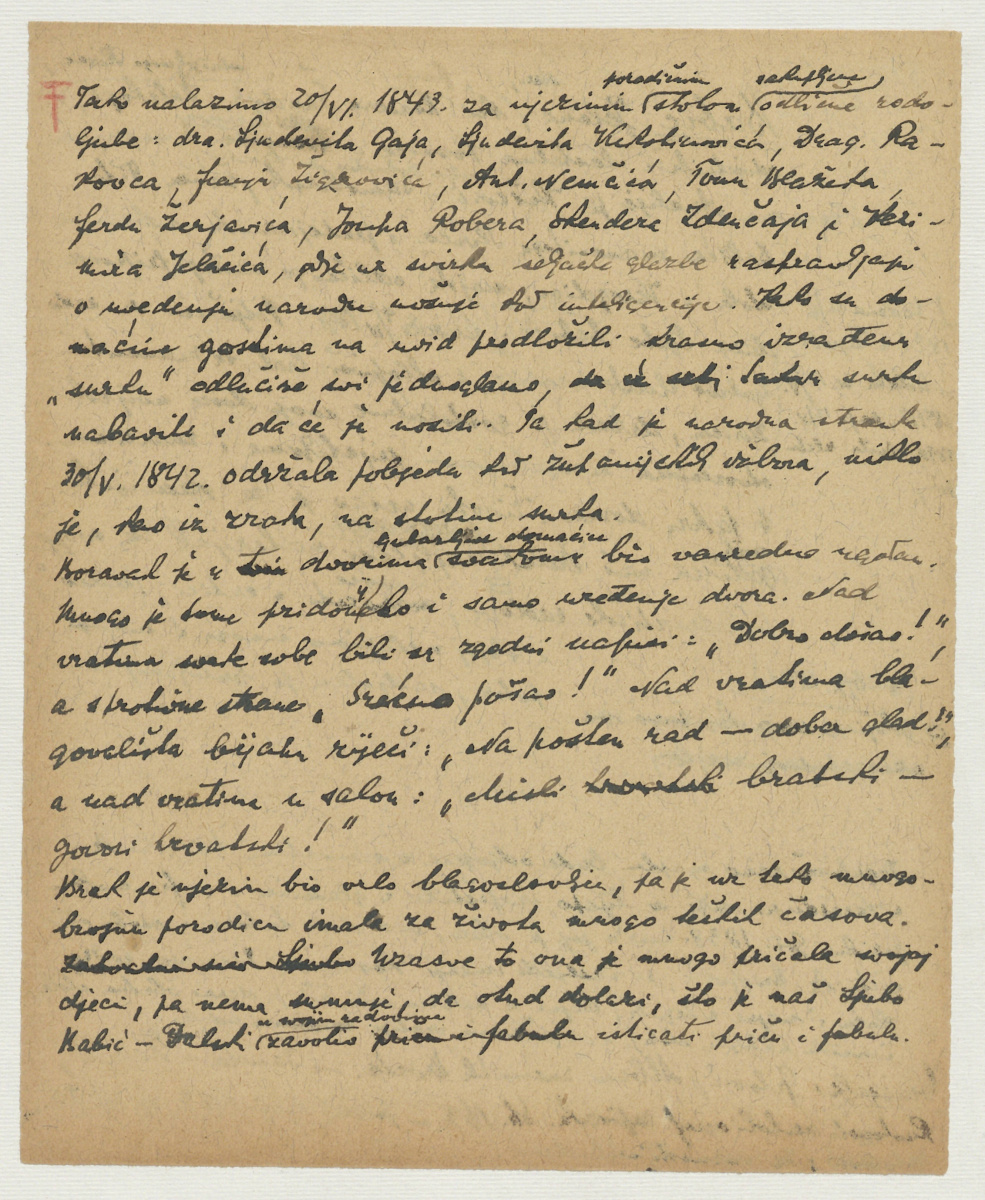 porodičnim sakupljene
Tako nalazimo 20/VI. 1843. za njezinim stolom odlične rodo-
ljube: dra. Ljudevita Gaja, Ljudevita Vukotinovića, Drag. Ra-
kovca, Franju Žigrovića, Ant. Nemčića, Tomu Blažeka,
Ferdu Žerjavića, Josipa Robera, Skendera Zdenčaja i Veri-
mira Jelačića, gdje uz svirku seljačke glazbe raspravljaju
o uvedenju narodne nošnje kod inteligencije. Kako su do-
maćini gostima na uvid predložili krasno izrađenu
„surku" odlučiše svi jednoglasno, da će si surku
nabaviti i da će je nositi. Pa kad je narodna stranka
30/V. 1842. održala pobjedu kod županijskih izbora, niklo
je, kao iz zraka, na stotine surka.
gubaljine domaćine
Boravak je u dvorima svatomu bio vanredno ugodan.
Mnogo je tome pridonielo i samo uređenje dvora. Nad
vratima svake sobe bili su zgodni napisi: „Dobro došao!",
a s protivne strane „Srećno pošao!" Nad vratima bla-
govališta bijahu riječi: „Na pošten rad — dobar glad!",
a nad vratima u salon: „Misli hrvatski bratski —
govori hrvatski!"
Brak je njezin bio vrlo blagoslovljen, pa je uz tako mnogo-
brojnu porodicu imala za života mnogo teških časova.
Uza sve to ona je mnogo pričala svojoj
djeci, pa nema sumnje, da otud dolazi, što je naš Ljubo
u svojim radovima
Babić — Dalski zavolio priču i fabulu isticati priču i fabulu.